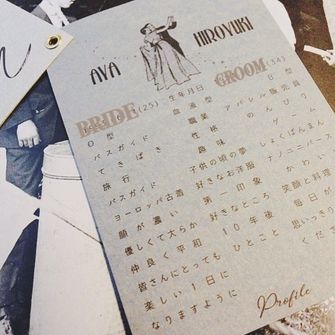 AYA
HIROYUKI
BRIDE (25) 生年月日 GROOM (34)
O型 血液型 B型
バスガイド 職業 アパレル販売員
てきぱき 性格 のんびり
旅行 趣味 ゲーム
バスガイド 子供の頃の夢 しょくぱんまん
ヨーロッパ古着 好きなお洋服 ナノユニバース
顔が濃い 第一印象 かわいい
優しくて大らか 好きなところ 笑顔と料理
仲良く平和 10年後 毎日
皆さんにとっても ひとこと 思いっきり
楽しい1日に
なりますように
Profile